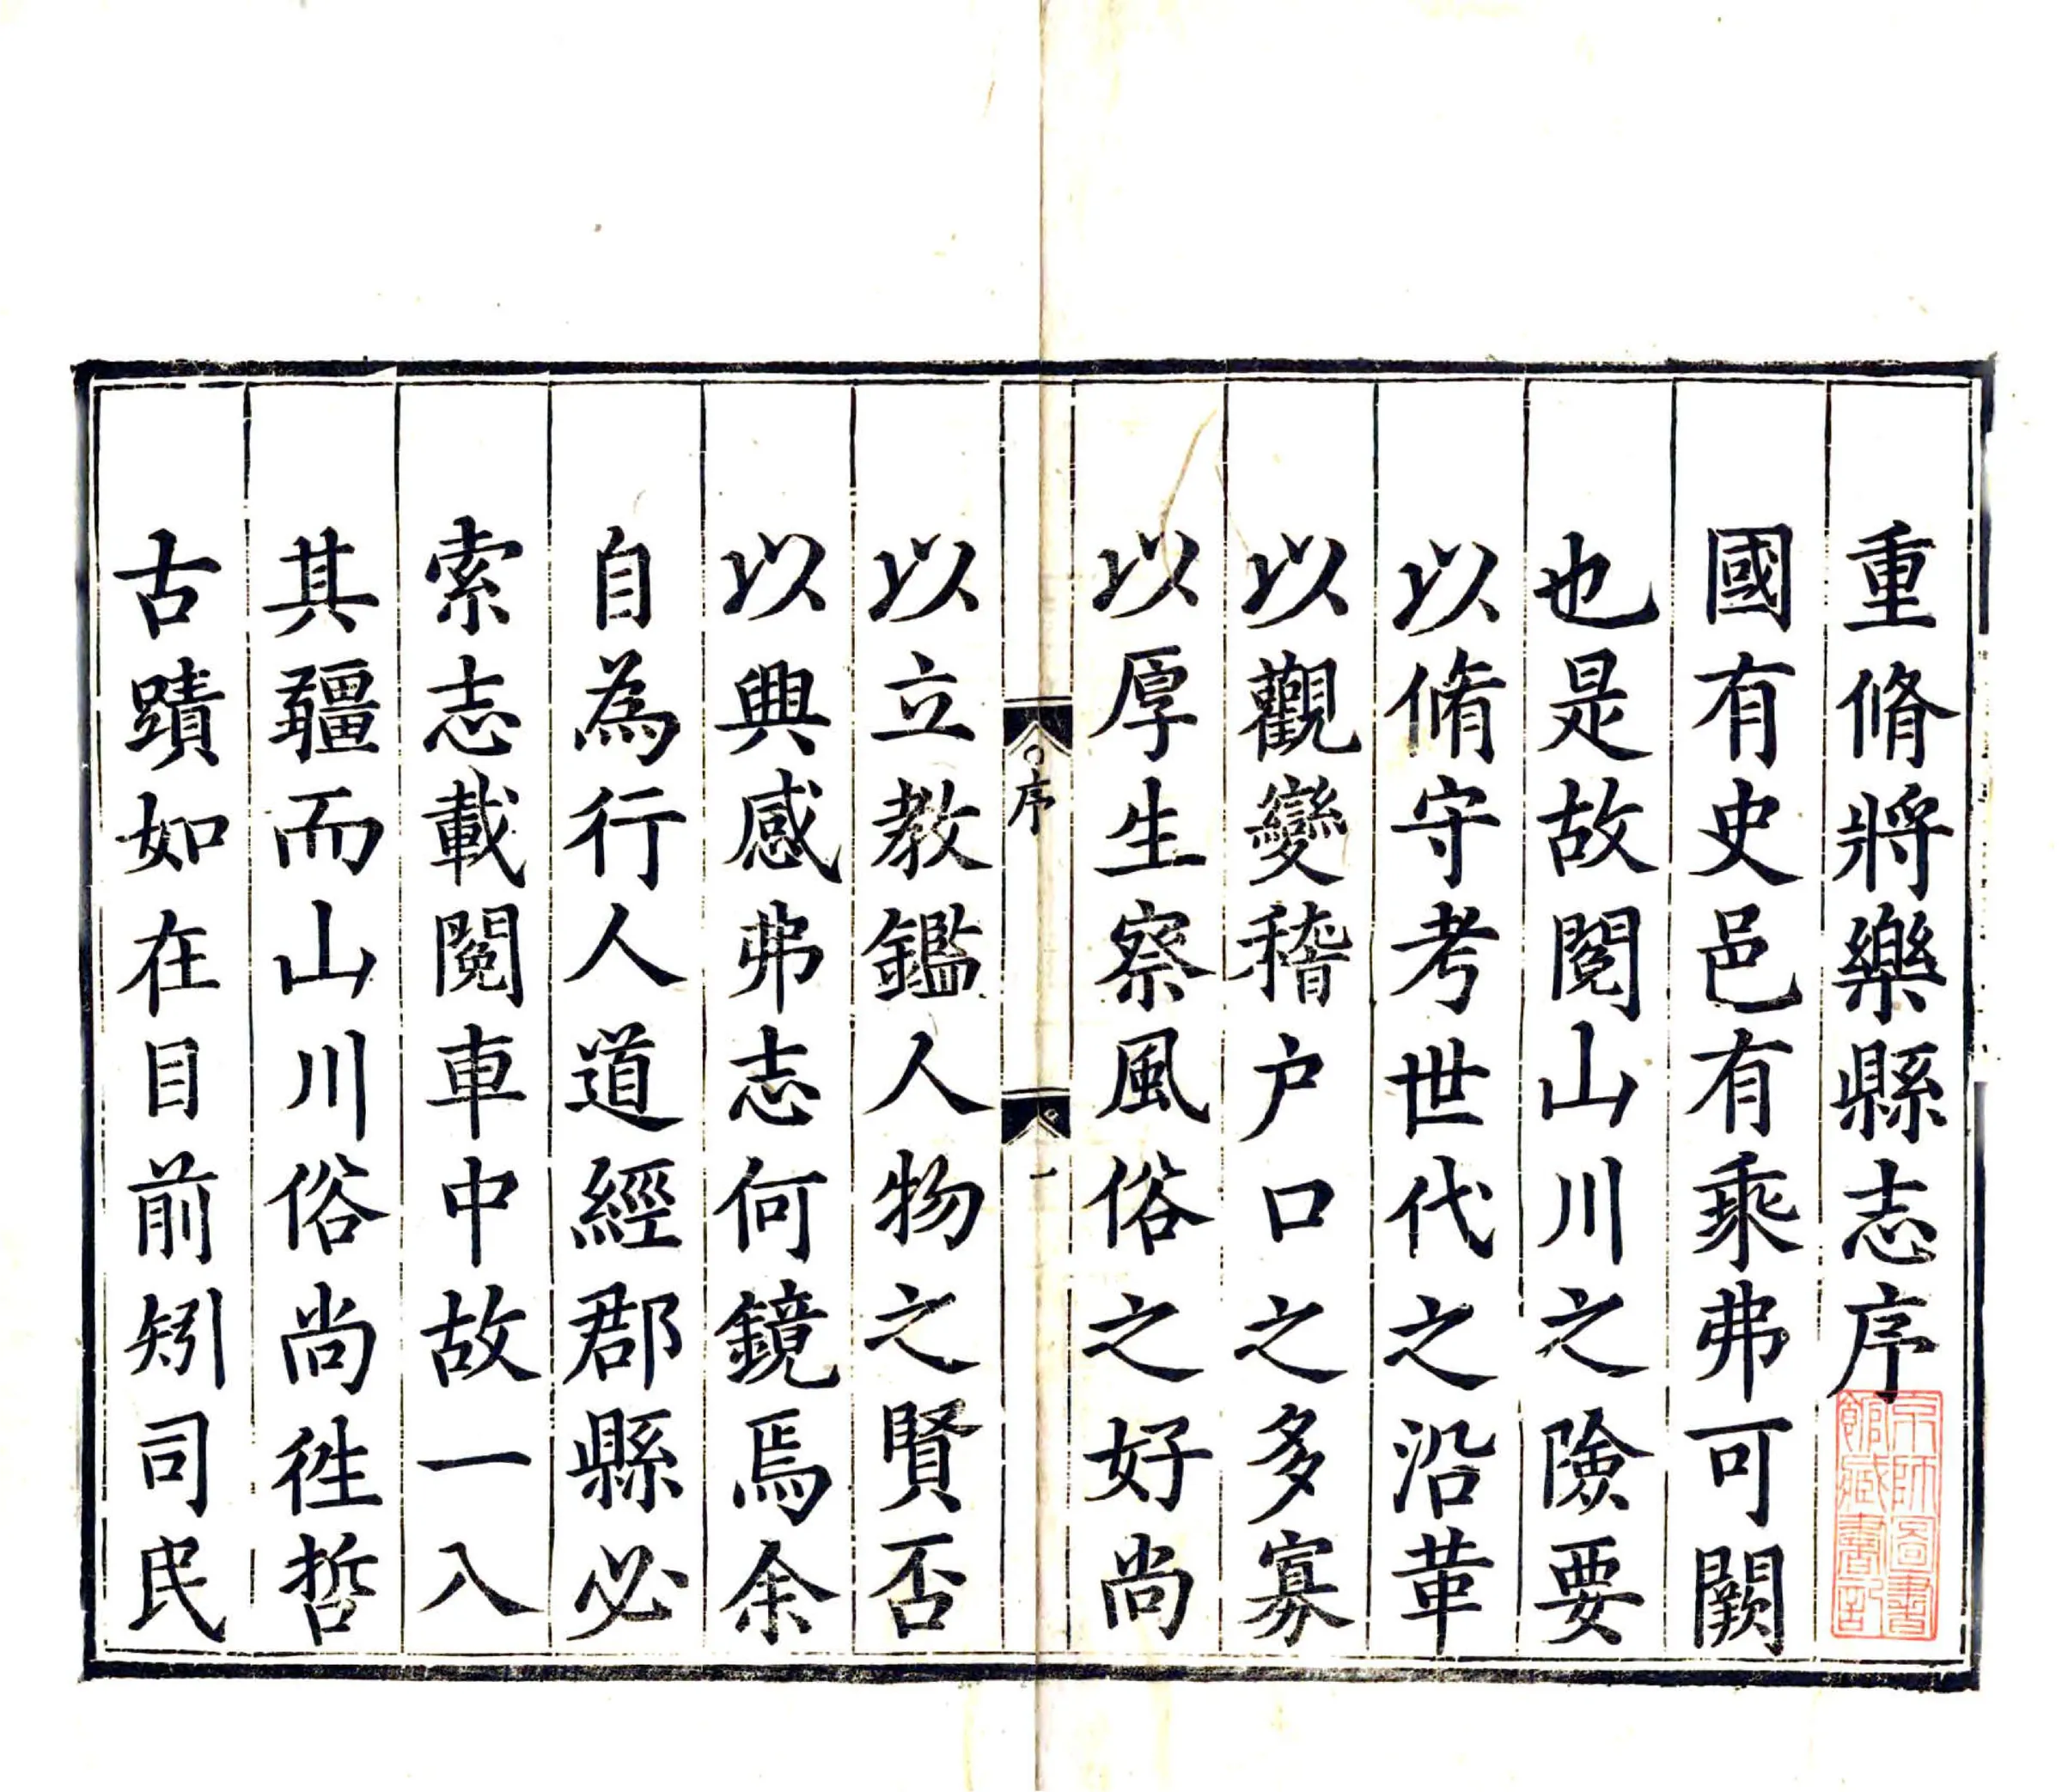 重脩將樂縣志序
國有史邑有乘弗可闕
也是故閱山川之險要
以脩守考世代之沿革
以觀變稽户口之多寡
以厚生察風俗之好尚
序
一
以立教鑑人物之賢否
以興感弗志何鏡焉余
自為行人道經郡縣必
索志載閱車中故一入
其疆而山川俗尚徃哲
古蹟如在目前矧司民
京師圖書
館藏書記